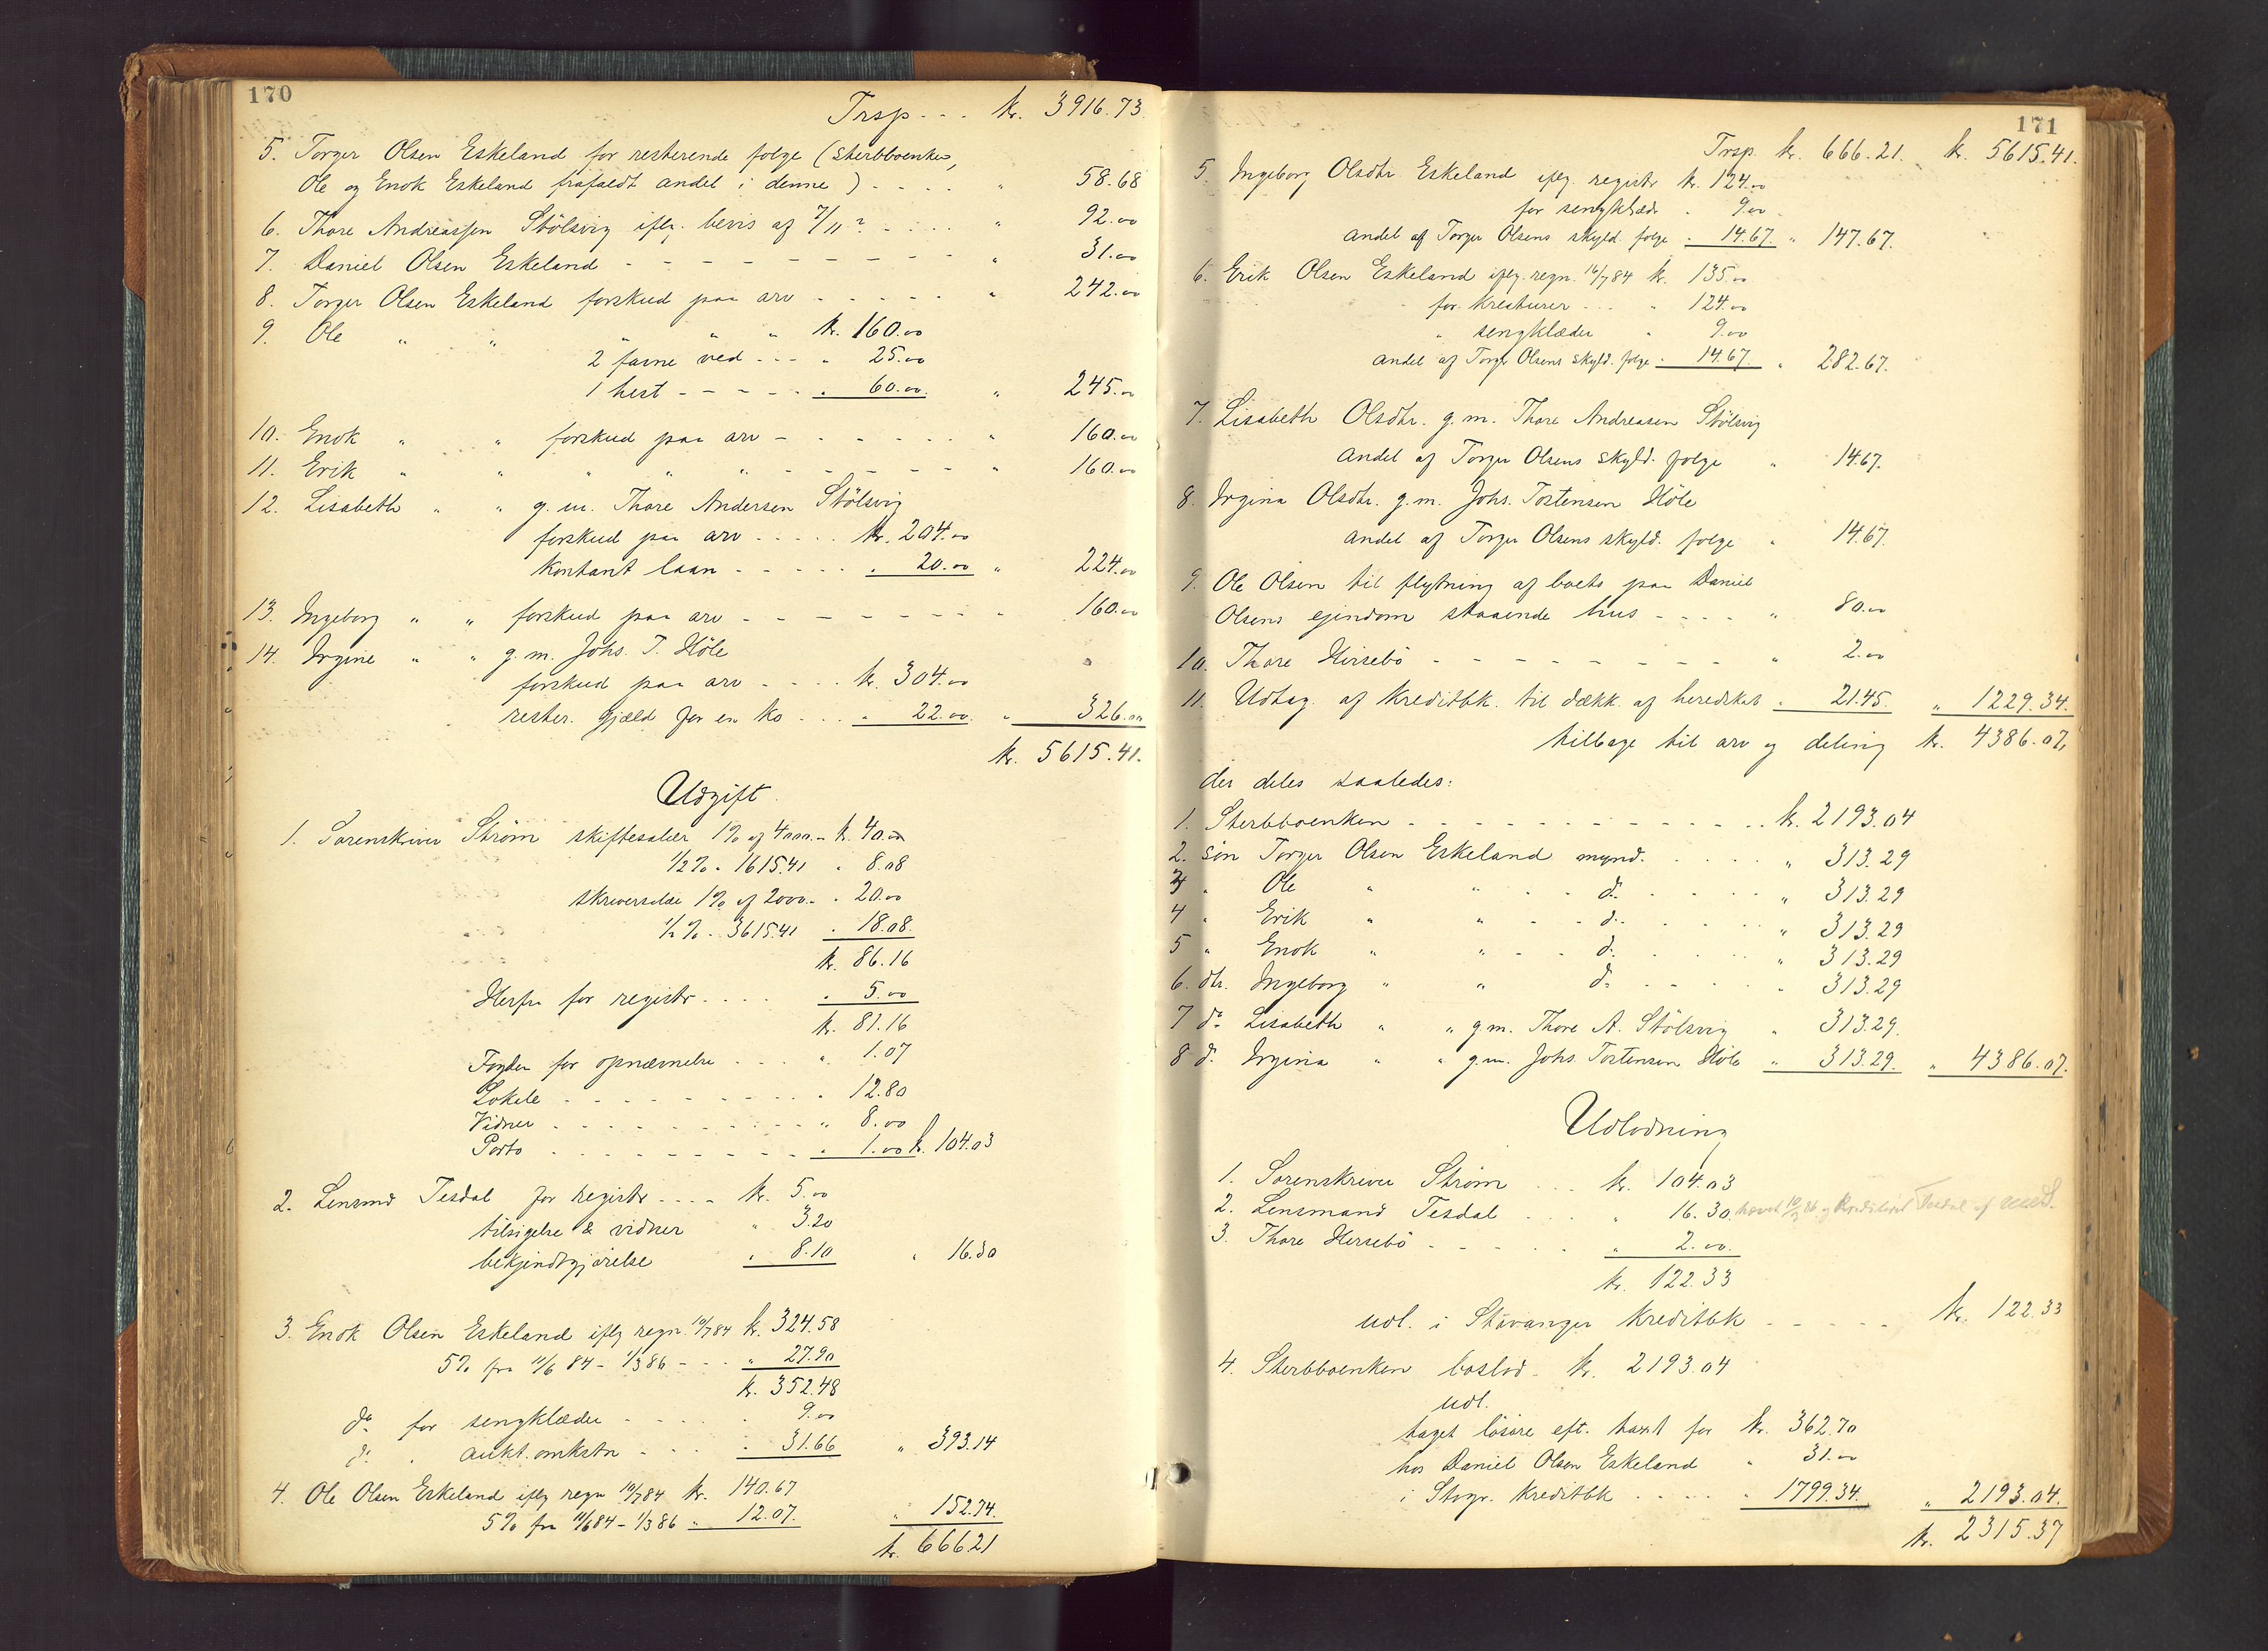 170
Trsp... kr. 3916.73
5. Torger Olsen Eskeland for resterende folge (Sterbboenken,
Ole og Enok Eskeland frafaldt andel i denne) .... " 58.68
6. Thore Andreassen Stölsvig iflg. bevis af 7/11? .... " 92.00
7. Daniel Olsen Eskeland - - - - - - - - " 31.00
8. Torger Olsen Eskeland forskud paa arv - - - - - " 242.00
9. Ole " " " " " kr. 160.00
2 favne ved - - - " 25.00
1 hest - - - - - " 60.00 " 245.00
10. Enok " " forskud paa arv - - - - - - " 160.00
11. Erik " " " " " - - - - - - " 160.00
12. Lisabeth " " g.m. Thore Andersen Stölsvig
forskud paa arv ..... kr. 204.00
Kontant laan - - - - - " 20.00 " 224.00
13. Ingeborg " " forskud paa arv - - - - - - - " 160.00
14. Irgine " " g.m. Johs. T. Höle
forskud paa arv - - - - kr. 304.00
rester. gjæld for en ko ... " 22.00 " 326.00
kr. 5615.41.
Udgift.
1. Sorenskriver Strøm skiftesalær 1% af 4000.- kr. 40.00
1/2% " 1615.41 " 8.08
skriversalær 1% af 2000.- " 20.00
1/2% " 3615.41 " 18.08.
kr. 86.16
Herfra for registr. .... " 5.00
kr. 81.16
Fogden for opnævnelse ... " 1.07
Lokale - - - - - - - - - " 12.80
Vidner - - - - - - - - - " 8.00
Porto - - - - - - - - - " 1.00 kr. 104.03
2. Lensmd Tesdal for registr .... kr. 5.00
tilsigelse & vidner " 3.20
bekjendtgjørelse " 8.10 " 16.30
3. Enok Olsen Eskeland iflg regn. 16/7 84 kr. 324.58
5% fra 11/6 84 - 1/3 86 - ... " 27.90
kr. 352.48
do for sengklæder - - - - " 9.00
do " aukt. omkstn - - - - " 31.66 " 393.14
4. Ole Olsen Eskeland iflg regn 16/7 84 kr. 140.67
5% fra 11/6 84 - 1/3 86 " 12.07. " 152.74.
kr. 666.21
171
Trsp. kr. 666.21. kr. 5615.41.
5. Ingeborg Olsdtr. Eskeland iflg. registr kr. 124.00
for sengklæder " 9.00
andel af Torger Olsens skyld. folge " 14.67. " 147.67.
6. Erik Olsen Eskeland iflg. regn. 16/7 84 kr. 135.00
for kreaturer ... " 124.00
" sengklæder " 9.00
andel af Torger Olsens skyld. folge " 14.67. " 282.67.
7. Lisabeth Olsdtr. g.m. Thore Andreasen Stölsvig
andel af Torger Olsens skyld. folge " 14.67.
8. Irgina Olsdtr. g.m. Johs. Tostensen Höle
andel af Torger Olsens skyld. folge " 14.67.
9. Ole Olsen til flytning af boets paa Daniel
Olsens ejendom staaende hus - - - - " 80.00
10. Thore Hersebö - - - - - - - - " 2.00
11. Udtag. af Kreditbk. til dækk. af heredskat " 21.45. " 1229.34.
tilbage til arv og deling kr. 4386.07,
der deles saaledes:
1. Sterbboenken - - - - - - - - - - - - kr. 2193.04
2. søn Torger Olsen Eskeland mynd. .... " 313.29
3 " Ole " " - - do - - - - " 313.29
4 " Erik " " - - do - - - - " 313.29
5 " Enok " " - - do - - - - " 313.29
6. dtr. Ingeborg " " do - - - - " 313.29
7 do Lisabeth " " g.m. Thore A. Stölsvig " 313.29.
8 do Irgina " " g.m. Johs. Tostensen Höle " 313.29. " 4386.07.
Udlodning
1. Sorenskriver Strøm ... kr. 104.03
2. Lensmand Tesdal .... " 16.30.
3. Thore Hersebö - - - - - " 2.00.
kr. 122.33
udl. i Stavanger Kreditbk - - - - - kr. 122.33
4. Sterbboenken boslod - kr. 2193.04
udl.
taget løsøre eft. taxt for kr. 362.70
hos Daniel Olsen Eskeland " 31.00
i Stvgr. Kreditbk ..... " 1799.34. " 2193.04.
kr. 2315.37